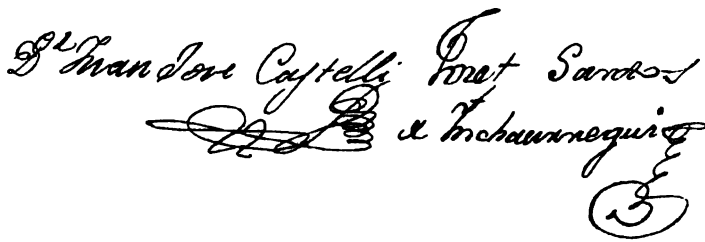 Dr Juan Jose Castelli Ygnat Santos
de Inchaurregui